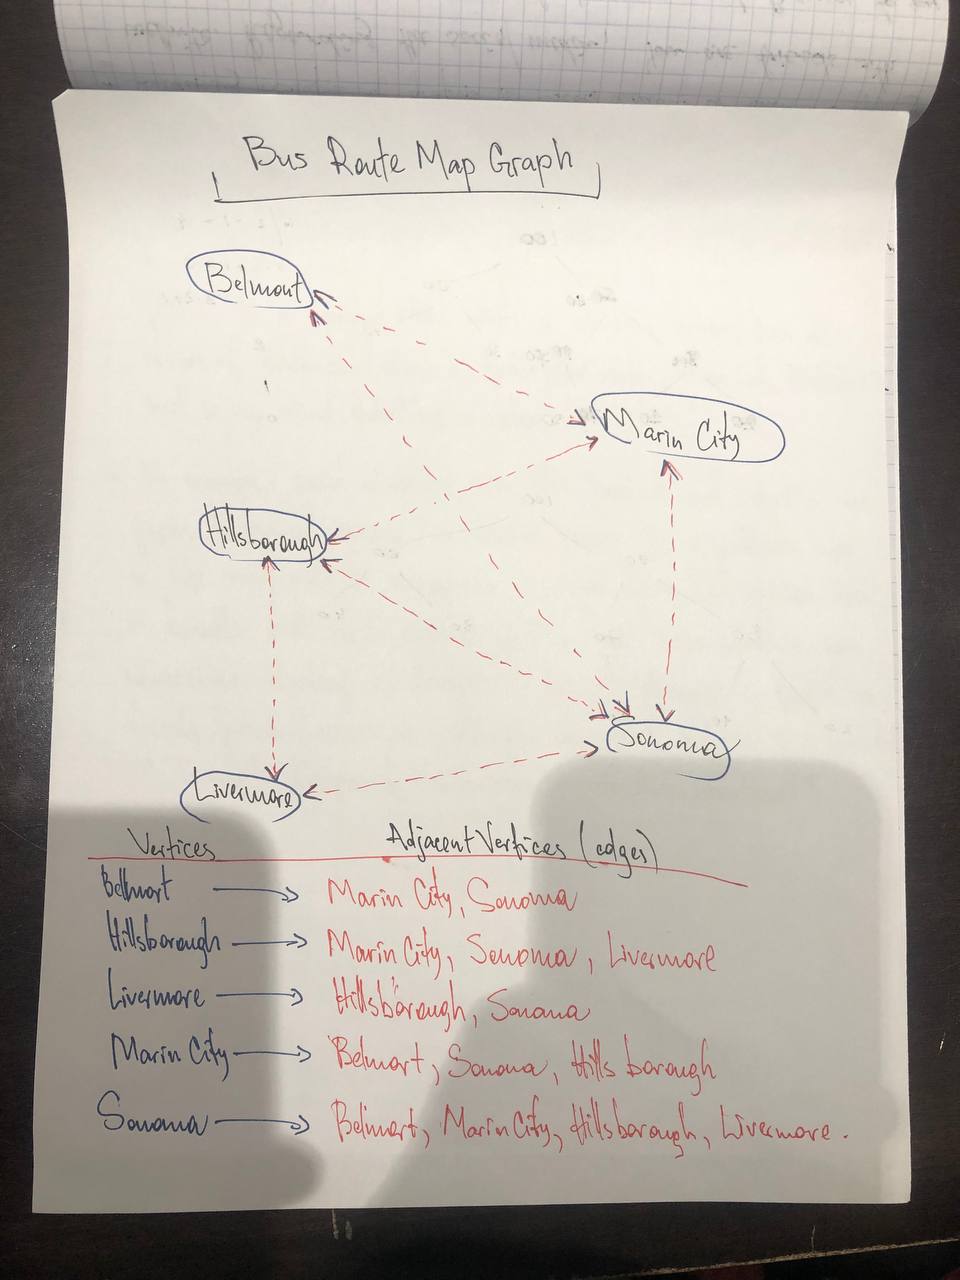 Bus Route Map Graph
Belmont
Marin City
Hillsborough
Sonoma
Livermore
Vertices Adjacent Vertices (edges)
Belmont Marin City, Sonoma
Hillsborough Marin City, Sonoma, Livermore
Livermore Hillsborough, Sonoma
Marin City Belmont, Sonoma, Hillsborough
Sonoma Belmont, Marin City, Hillsborough, Livermore.